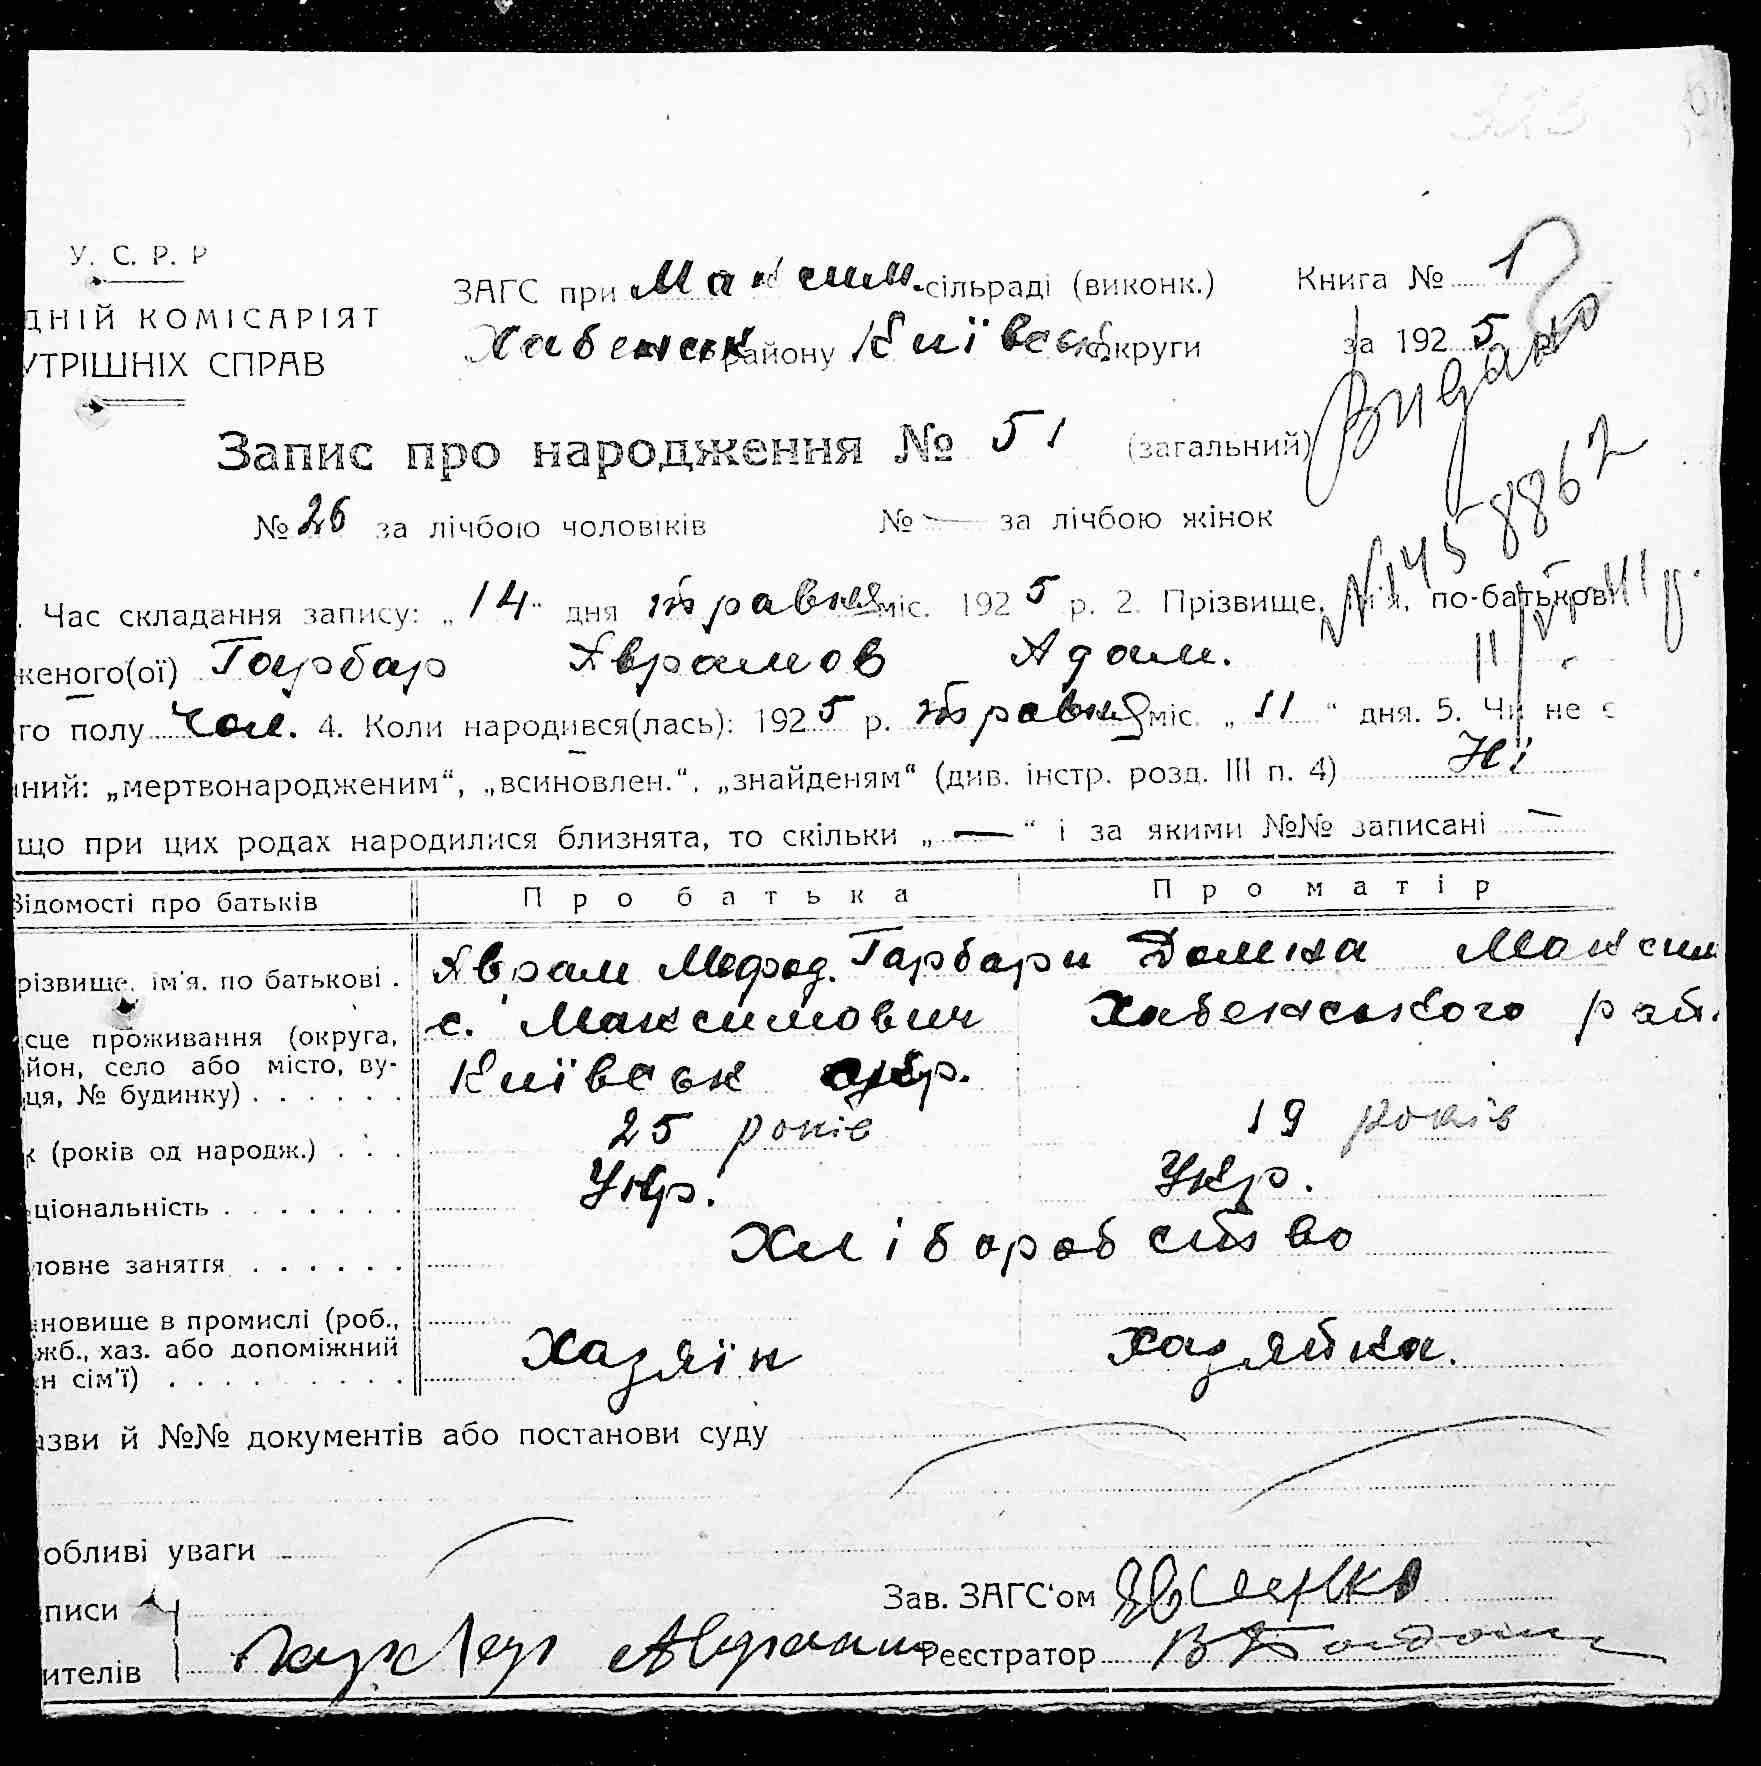 У. С. Р. Р
ДНІЙ КОМІСАРІЯТ
УТРІШНІХ СПРАВ
ЗАГС при Максим. сільраді (виконк.)
Хабенськ району Київськ. округи
Книга № 1
за 1925
Видано
Запис про народження № 51 (загальний)
№ 26 за лічбою чоловіків № — за лічбою жінок
. Час складання запису: „14“ дня травня міс. 1925 р. 2. Прізвище, ім'я, по-батькові
женого(ої) Гарбар Аврамов Адам.
го полу Чол. 4. Коли народився(лась): 1925 р. травня міс. „11“ дня. 5. Чи не є
ний: „мертвонародженим“, „всиновлен.“, „знайденям“ (див. інстр. розд. III п. 4) Ні
що при цих родах народилися близнята, то скільки „—“ і за якими №№ записані —
Відомості про батьків Про батька Про матір
різвище, ім'я, по батькові . Аврам Мефод. Гарбари Домка Максим
сце проживання (округа, с. Максимович Хабенського рай.
йон, село або місто, ву-
ця, № будинку) . . . . . . Київськ окр.
к (років од народж.) . . . 25 років 19 років
ціональність . . . . . . . Укр. Укр.
ловне заняття . . . . . . Хліборобство
новище в промислі (роб.,
жб., хаз. або допоміжний Хазяїн Хазяйка.
н сім'ї) . . . . . . . . .
зви й №№ документів або постанови суду
обливі уваги
Зав. ЗАГС'ом
писи
ителів Гарбар Аврам Реєстратор